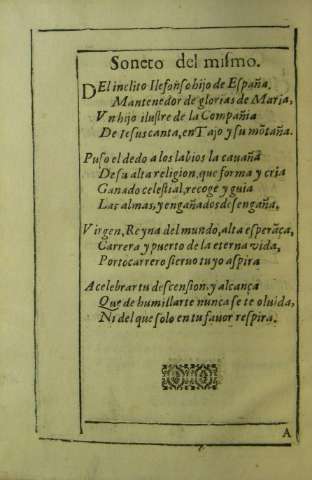 Soneto del mismo.
DEl inclito Ilefonso hijo de España,
Mantenedor de glorias de Maria,
Vn hijo ilustre de la Compañia
De Iesus canta, en Tajo y su mõtaña.
Puso el dedo a los labios la cauaña
De su alta religion, que forma y cria
Ganado celestial, recoge y guia
Las almas, y engañados desengaña,
Virgen, Reyna del mundo, alta esperãça,
Carrera y puerto de la eterna vida,
Portocarrero sieruo tuyo aspira
A celebrar tu descension, y alcança
Que de humillarte nunca se te oluida,
Ni del que solo en tu fauor respira.
A